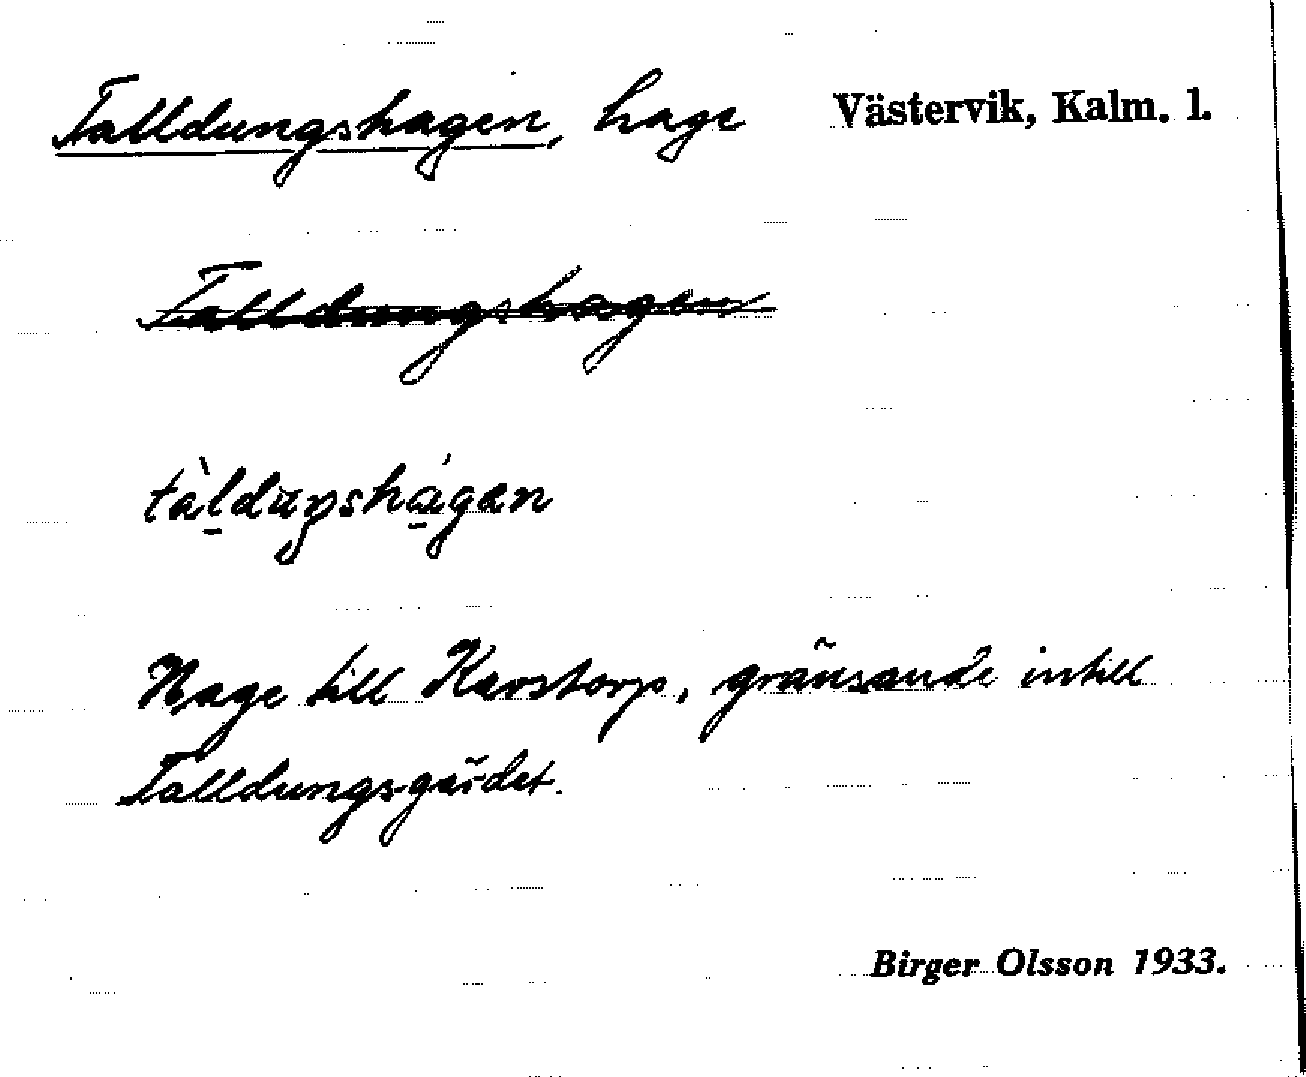 Talldungshagen, hage Västervik, Kalm. l.
Talldungshagen
tàl̠duŋshá̠gan
Hage till Karstorp, gränsande intill
Talldungsgärdet.
Birger Olsson 1933.